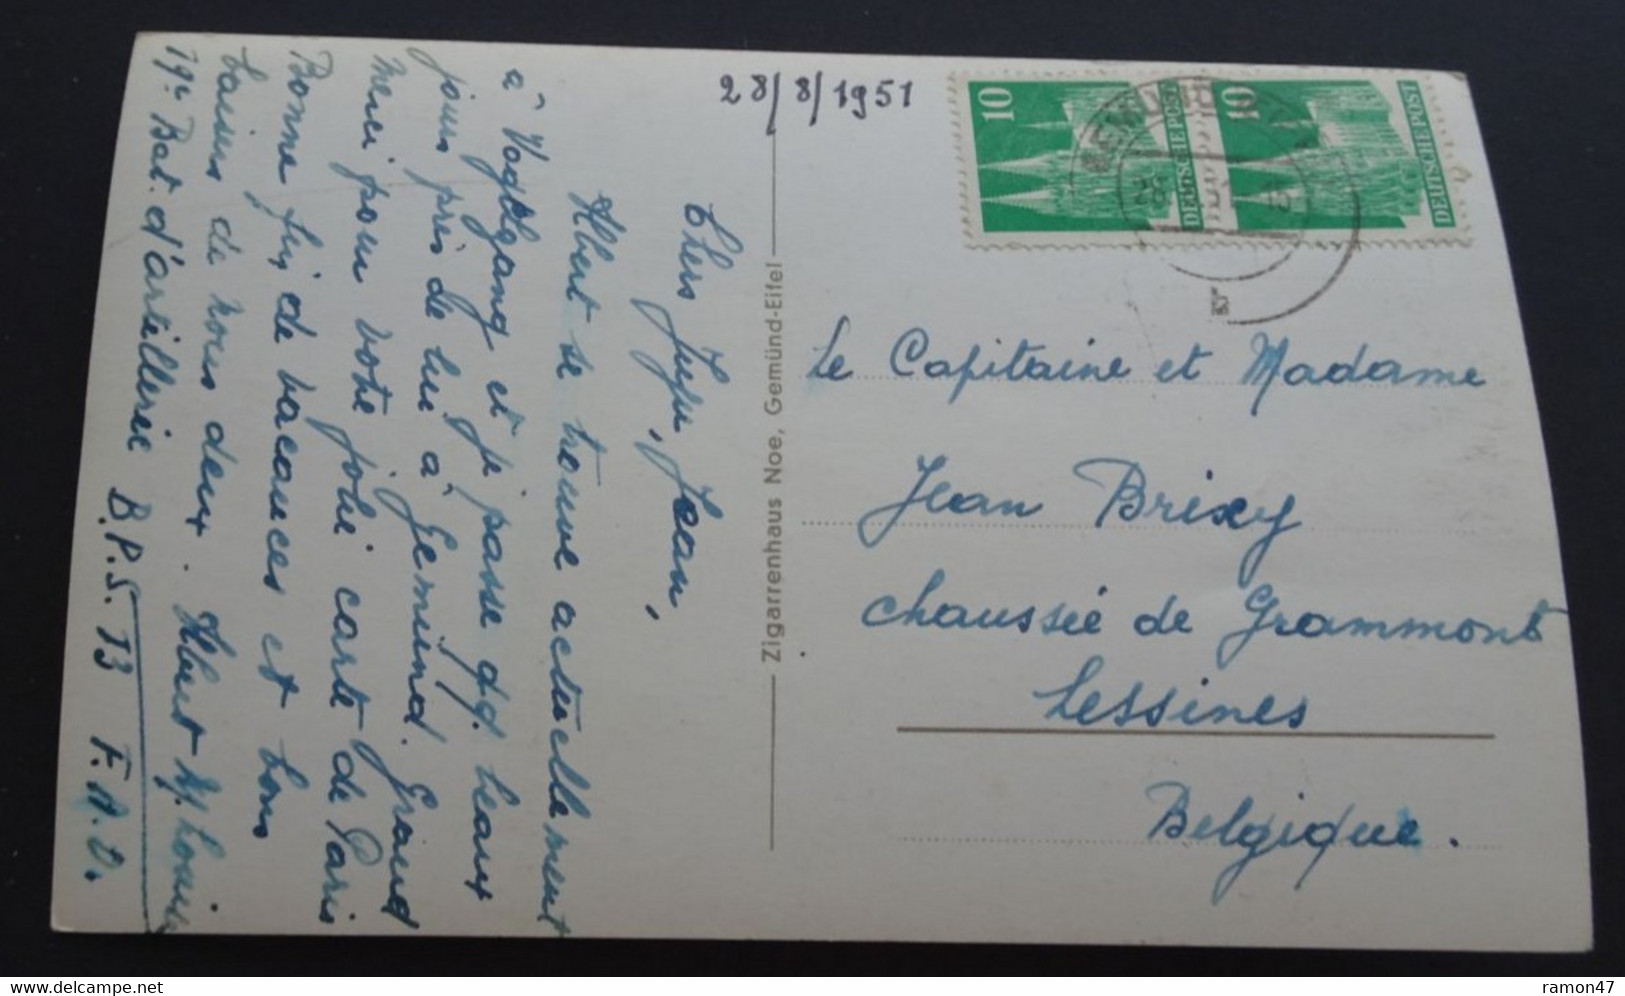 28/8/1951
Chers Juju, Jean,
Albert se trouve actuellement
à Vogelsang et je passe qq. beaux
jours près de lui à Gemünd. Grand
Merci pour votre jolie carte de Paris
Bonne fin de vacances et bons
baisers de nous deux. Albert &
19e Bat. d'artillerie B.P.S. 13 F.A.O.
Zigarrenhaus Noe, Gemünd-Eifel
10
DEUTSCHE POST
10
DEUTSCHE POST
Le Capitaine et Madame
Jean Brixy
Chaussée de Grammont
Lessines
Belgique.
delcampe.net
ramon47